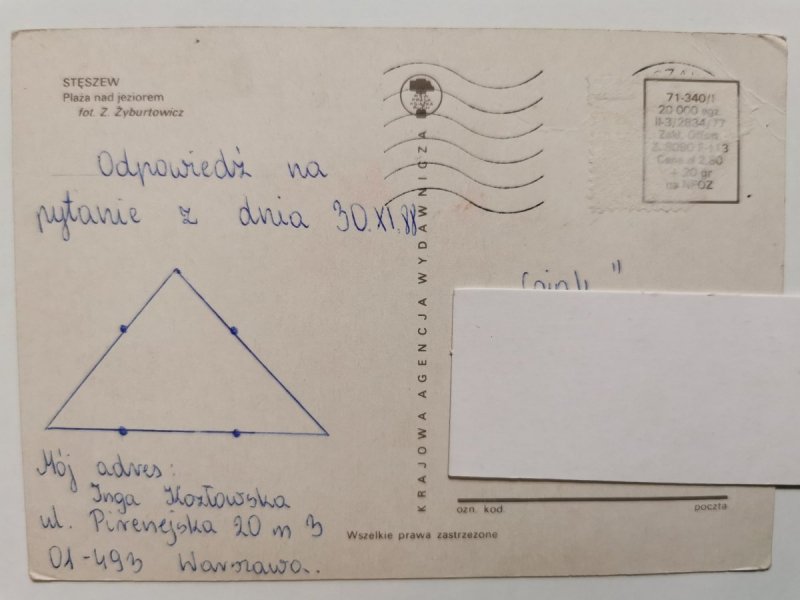 STĘSZEW
Plaża nad jeziorem
fot. Z. Żyburtowicz
Odpowiedź na
pytanie z dnia 30.XI.88
Mój adres:
Inga Kozłowska
ul. Pirenejska 20 m 3
01-493 Warszawa.
KRAJOWA AGENCJA WYDAWNICZA
71-340/I
20 000 egz.
Zakł. Offset.
Cena zł 2,80
+ 20 gr
na NFOZ
ozn. kod.
poczta
Wszelkie prawa zastrzeżone